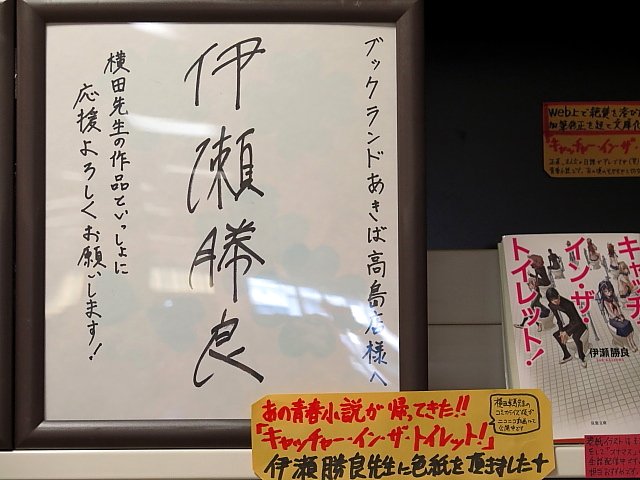 ブックランドあきば高島店様へ
伊瀬勝良
横田先生の作品といっしょに
応援よろしくお願いします！
あの青春小説が帰ってきた!!
「キャッチャー・イン・ザ・トイレット!」
伊瀬勝良先生に色紙を頂きました
Web上で絶賛を
加筆修正を経て文庫化
キャッチャー・イン・ザ
キャッチャー・
イン・ザ・
トイレット！
伊瀬勝良
双葉文庫